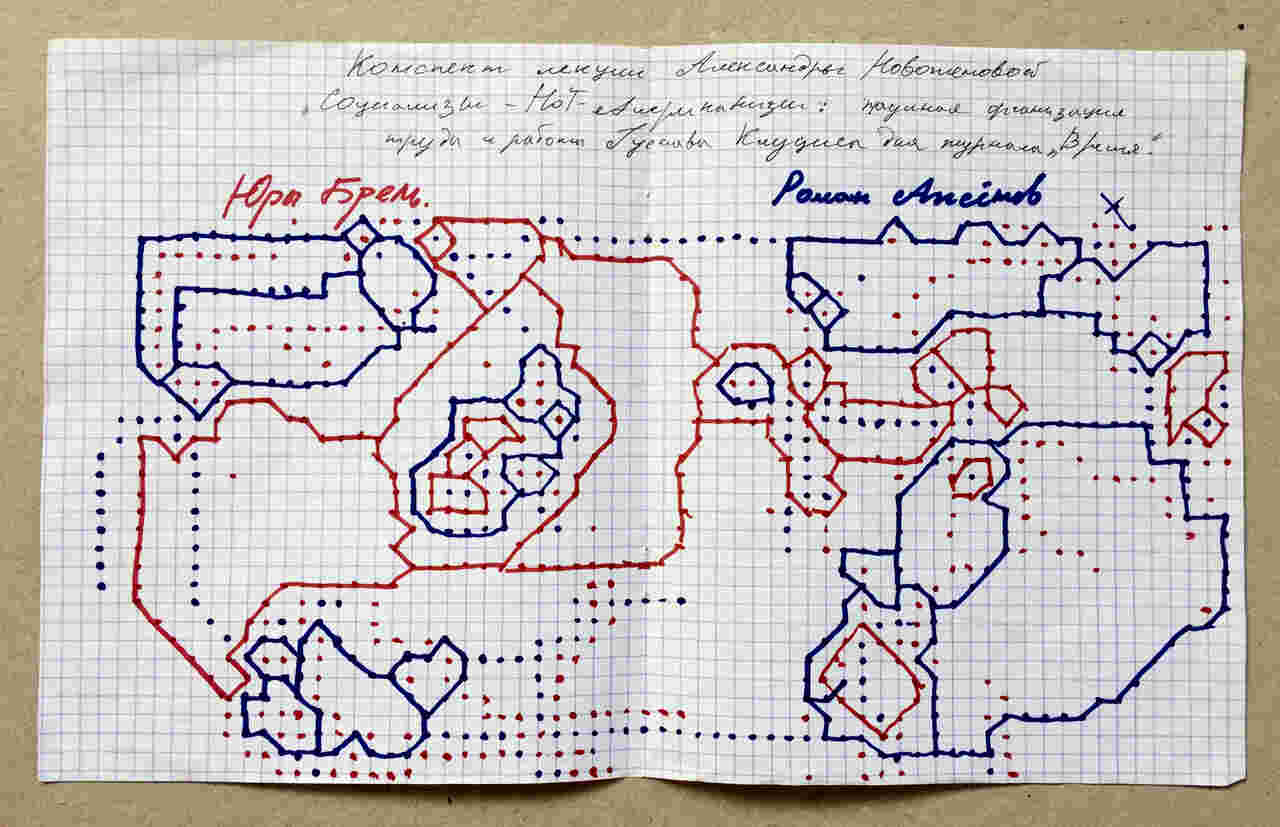 Конспект лекции Александры Новоженовой
„Социализм – НОТ – Американизм: научная организация
труда и работы Густава Клуциса для журнала „Время“.
Юра Брем.
Роман Аксёнов